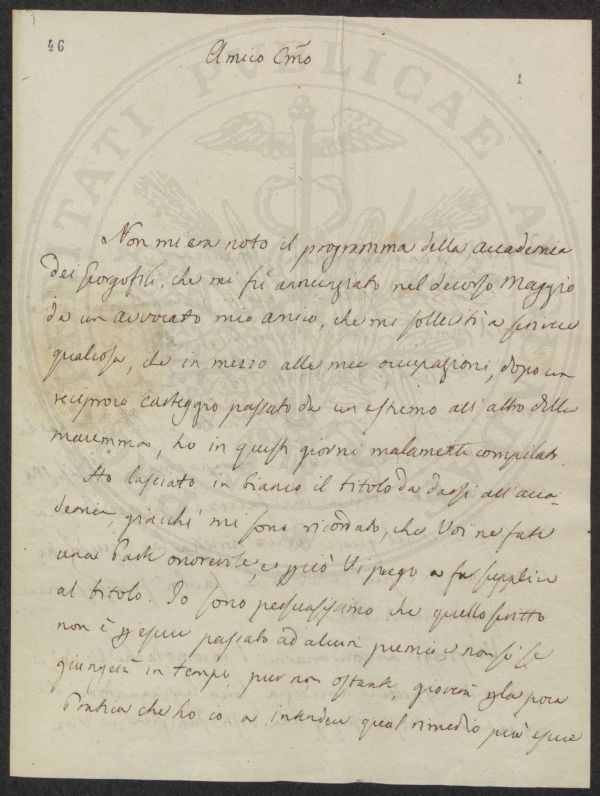 46
Amico Cmo
1
Non mi era noto il programma della accademia
dei Georgofili, che mi fù annunziato nel decorso Maggio
da un avvocato mio amico, che mi sollecitò a scrivere
qualcosa, che in mezzo alle mie occupazioni, dopo un
reciproco carteggio passato da un estremo all'altro della
maremma, ho in questi giorni malamente compilato.
Ho lasciato in bianco il titolo da darsi all'acca-
demia, giacchè mi sono ricordato, che Voi ne fate
una Parte onorevole, e Vi prego a supplire
al titolo. Io sono persuasissimo che quello scritto
non è passato ad alcun premio e non sò se
giungerà in tempo, pur non ostante, gioverà la poca
Pratica che ho io a intendere qual rimedio può essere
PUBLICAE